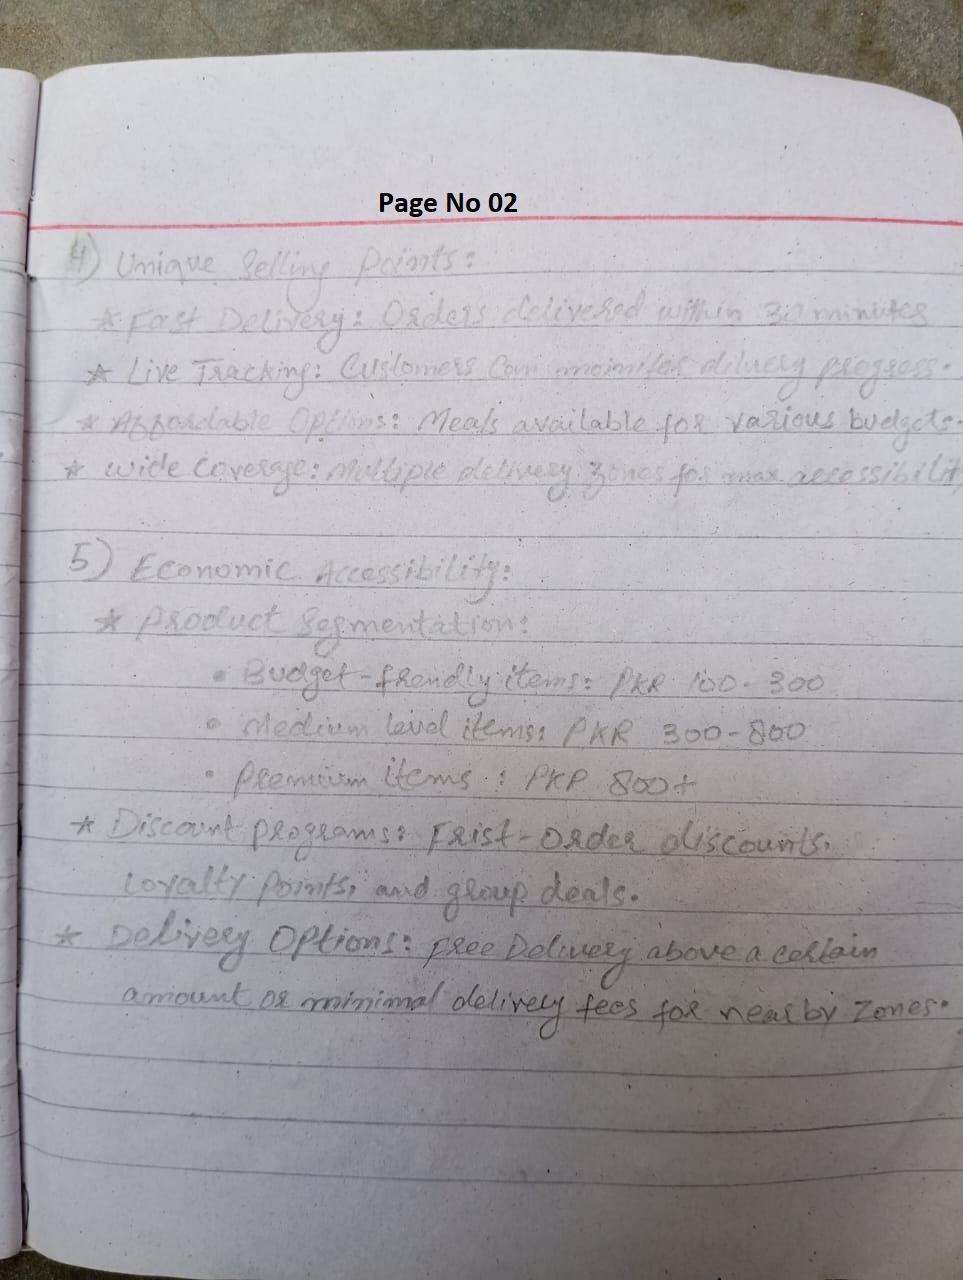 Page No 02
4) Unique Selling Points:
* Fast Delivery: Orders delivered within 30 minutes
* Live Tracking: Customers can moinitor dilvery progress.
* Affordable Options: Meals available for various budgets.
* wide Coverage: Multiple delivery zones for max accessibility
5) Economic Accessibility:
* Product Segmentation:
• Budget-frendly items: PKR 100-300
• Medium level items: PKR 300-800
• Premium items : PKR 800+
* Discount programs: Frist-order discounts,
Loyalty points, and group deals.
* Delivery Options: Free Delivery above a certain
amount or minimal delivery fees for nearby zones.